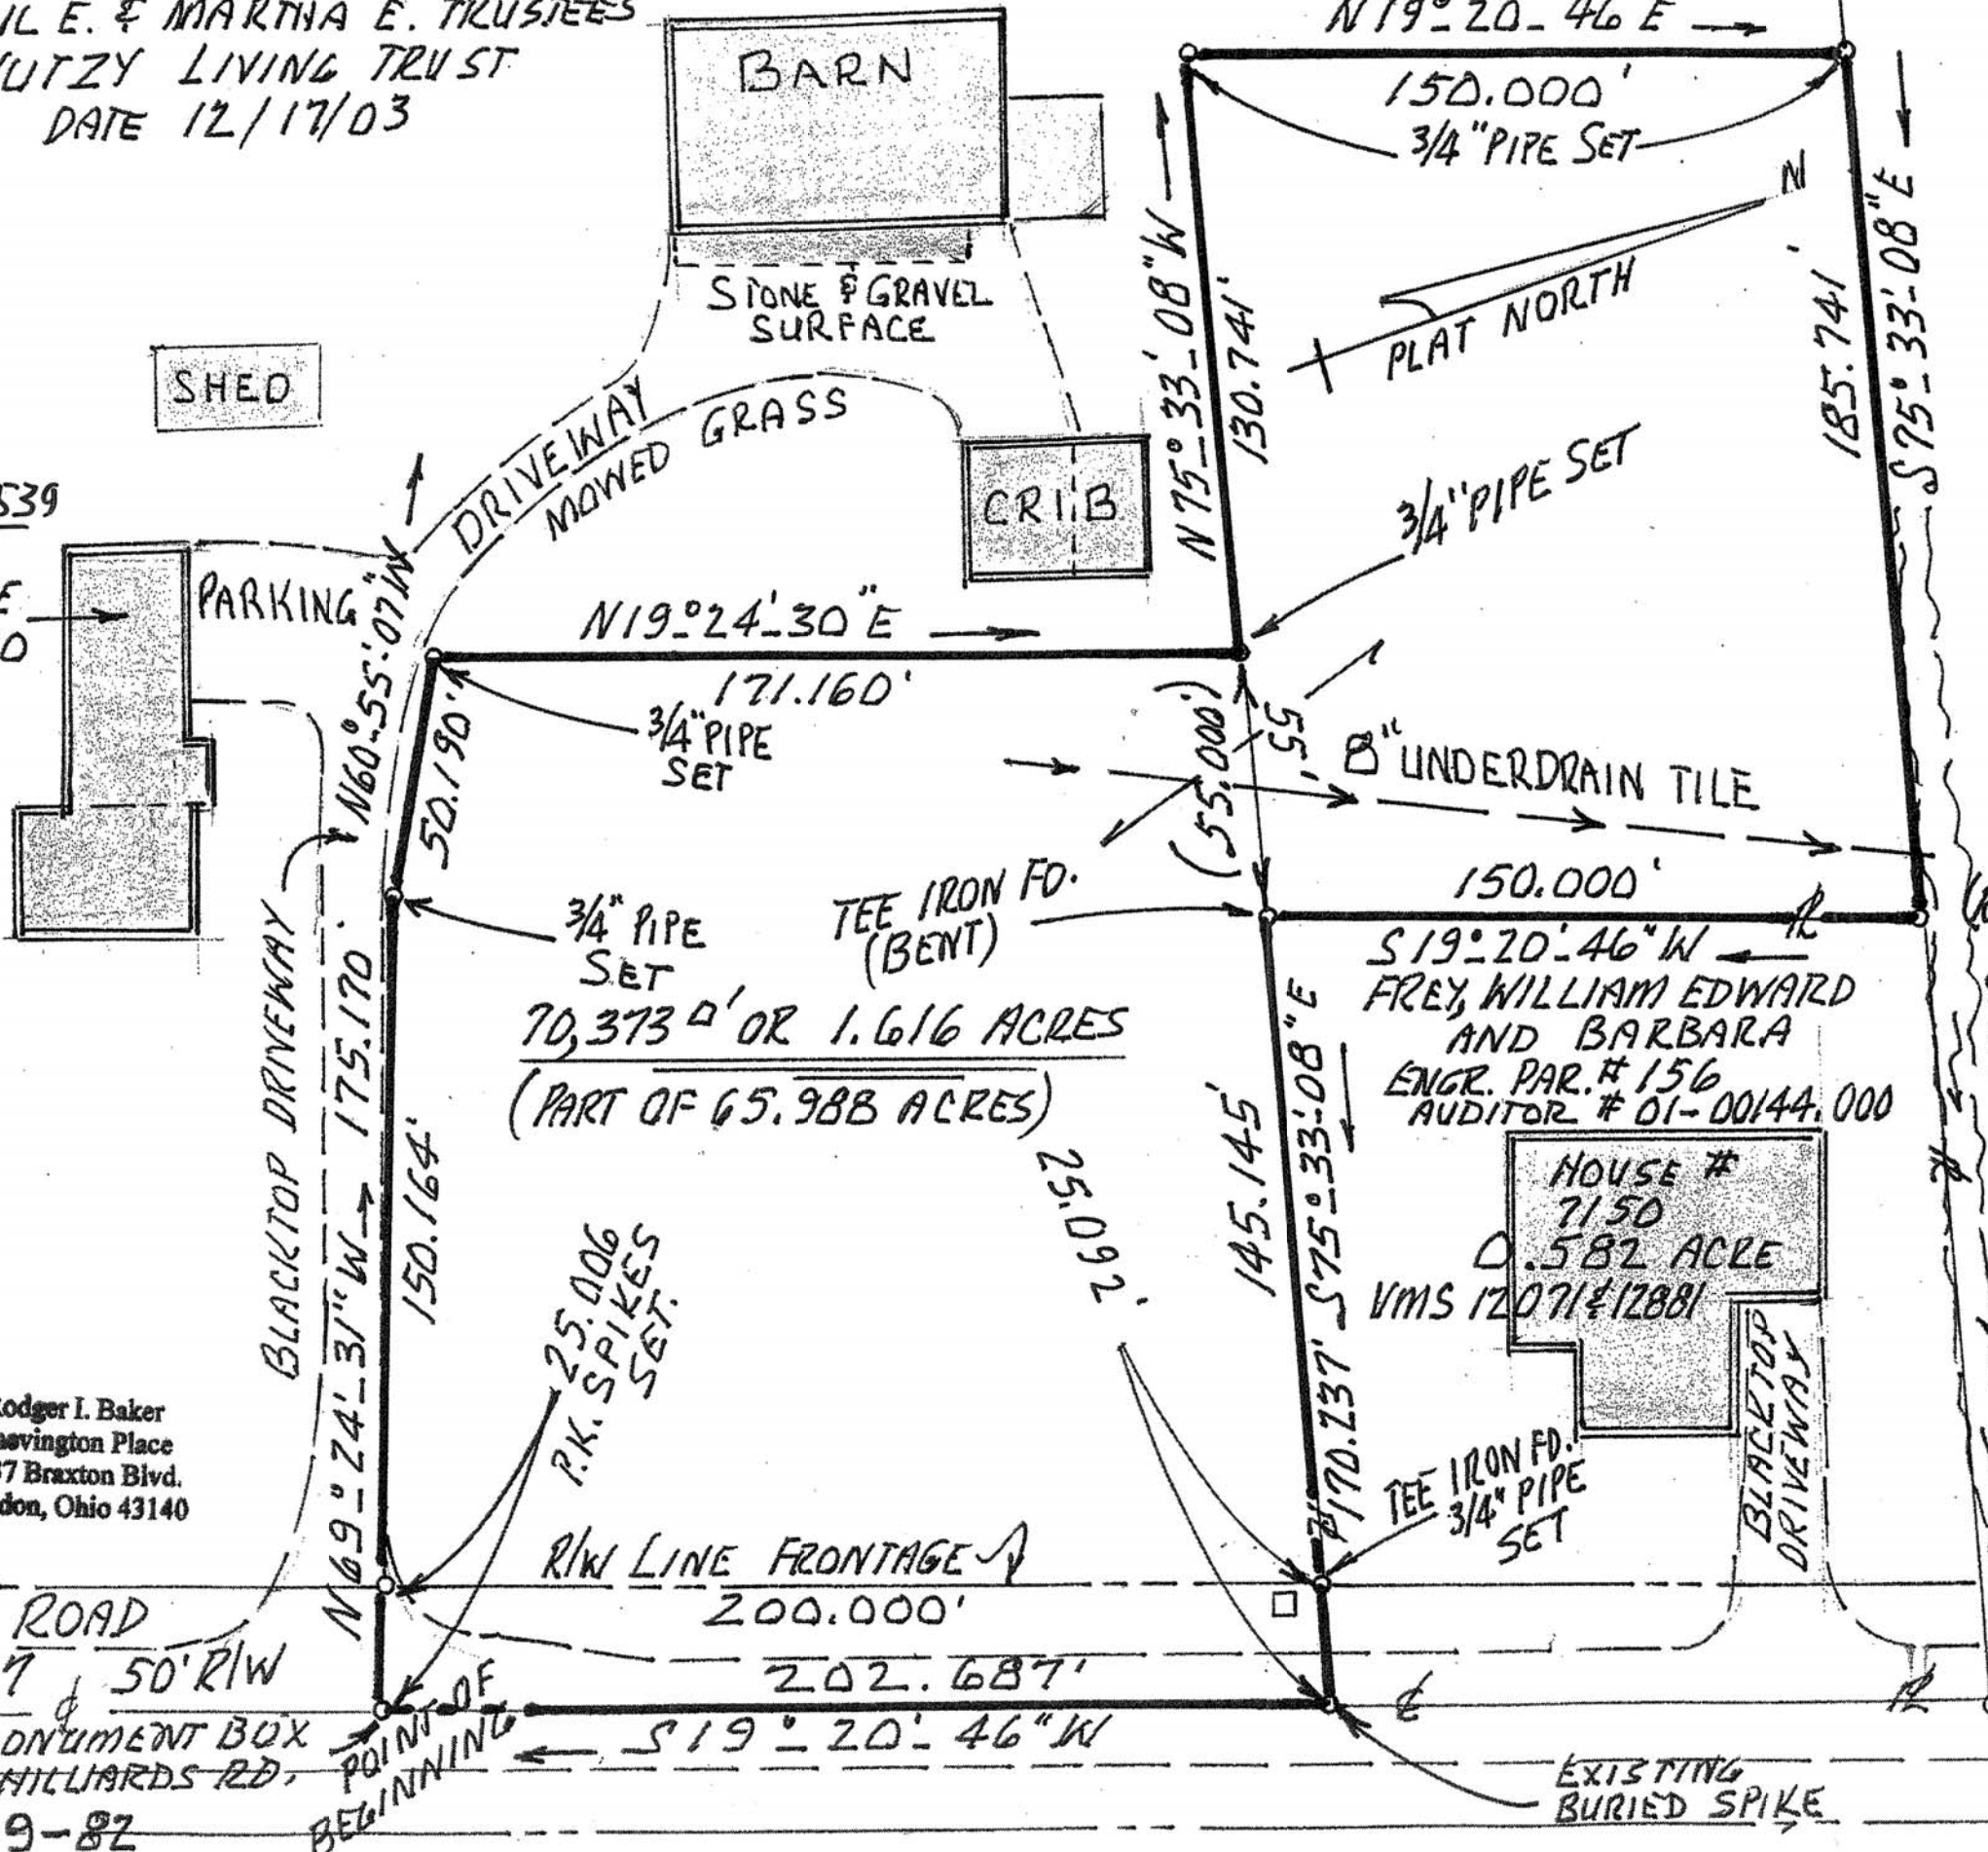 IL E. & MARTHA E. TRUSTEES
UTZY LIVING TRUST
DATE 12/17/03
BARN
N19°-20-46 E
150.000'
3/4" PIPE SET
N
PLAT NORTH
STONE & GRAVEL
SURFACE
SHED
DRIVEWAY
MOWED GRASS
CRIB
N75°-33'-08"W
130.741'
185.741'
S75°-33'-08"E
3/4" PIPE SET
539
E
0
PARKING
N60°-55'-07"W
N19°-24'-30"E
171.160'
50.190'
3/4" PIPE
SET
(55.000')
55'
8" UNDERDRAIN TILE
TEE IRON FD.
(BENT)
150.000'
3/4" PIPE
SET
S19°-20'-46"W
FREY, WILLIAM EDWARD
AND BARBARA
ENGR. PAR. # 156
AUDITOR # 01-00144.000
70,373 □' OR 1.616 ACRES
(PART OF 65.988 ACRES)
BLACKTOP DRIVEWAY
N69°-24'-31"W 175.170'
150.164'
25.006
P.K. SPIKES
SET.
25.092'
145.145'
170.237' S75°-33'-08"E
HOUSE #
7150
0.582 ACRE
VMS 12071 & 12881
BLACKTOP
DRIVEWAY
odger I. Baker
avington Place
37 Braxton Blvd.
don, Ohio 43140
TEE IRON FD.
3/4" PIPE
SET
R/W LINE FRONTAGE
200.000'
ROAD
7 50' R/W
202.687'
S19°-20'-46"W
ONUMENT BOX
HILLIARDS RD,
9-82
POINT OF
BEGINNING
EXISTING
BURIED SPIKE